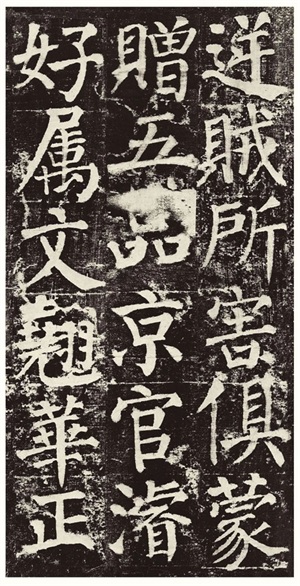 逆賊所害俱蒙
贈五品京官濬
好属文翹華正